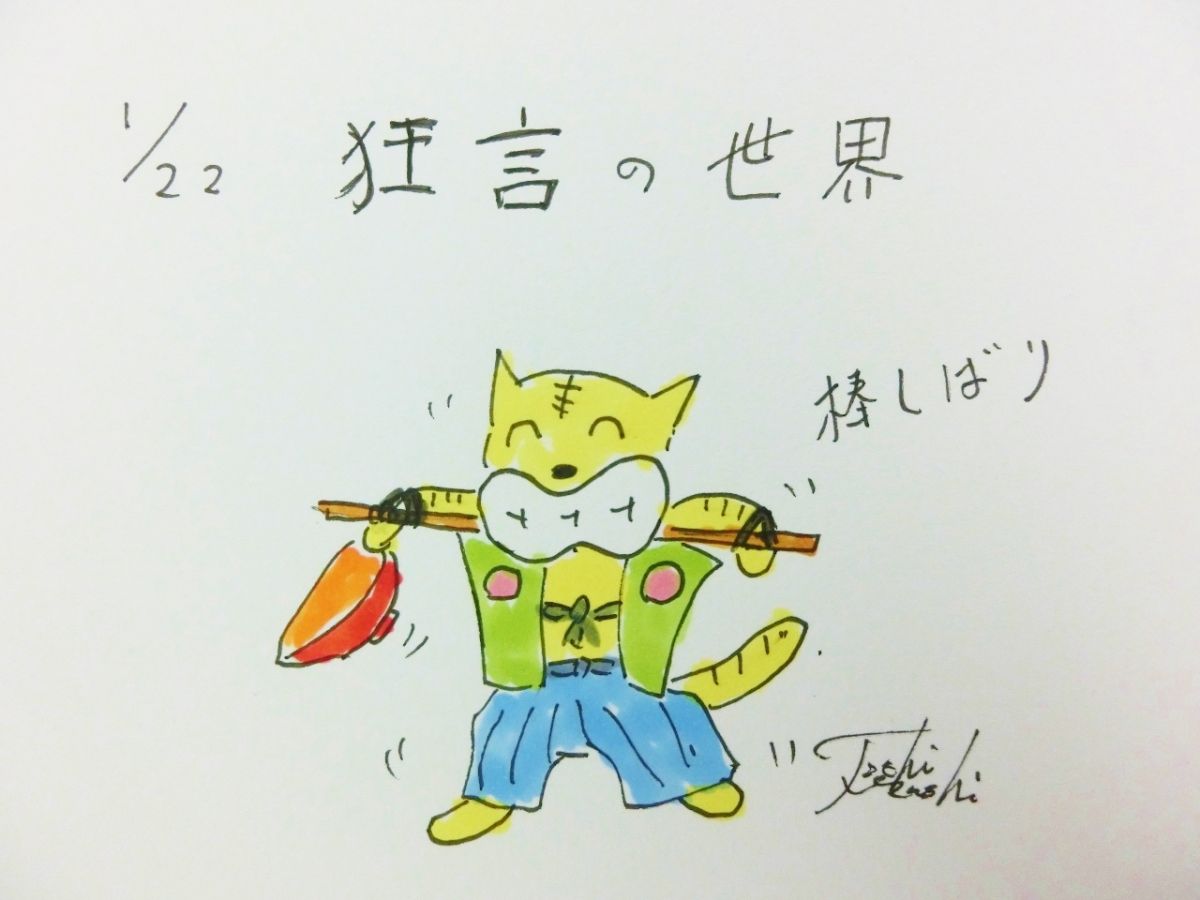 1/22 狂言の世界
棒しばり